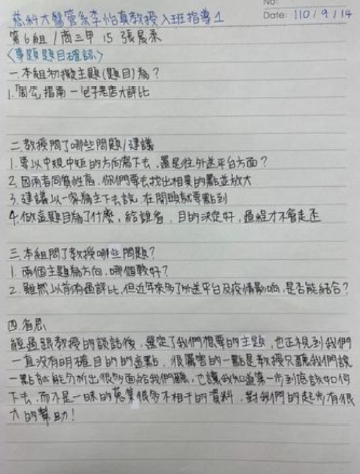 No:
Date: 110/9/14
慈科大醫管系李怡真教授入班指導1
第6組/商三甲 15 張
〈專題題目確認〉
一.本組初擬主題(題目)為?
1.周公指南一包子店大評比
二.教授問了哪些問題/建議
1.要以中規中矩的方向寫下去,還是往外送平台方面?
2.因兩者同質性高,你們要去找出相異的點並放大
3.建議以一家為主下去說,在開頭就要點到
4.做這題目為了什麼,給誰看,目的決定好,過程才不會走歪
三.本組問了教授哪些問題?
1.兩個主題為方向,哪個較好?
2.雖然以前有過評比,但近年來多了外送平台及疫情影響,是否能結合?
四.省思
經過跟教授的談話後,確定了我們想要的主題,也正視到我們
一直沒有明確目的的盲點,很厲害的一點是教授只聽我們說
一點就能分析出很多面給我們聽,也讓我知道第一步到底該如何
下去,而不是一昧的蒐集很多不相干的資料,對我們的起步有很
大的幫助!